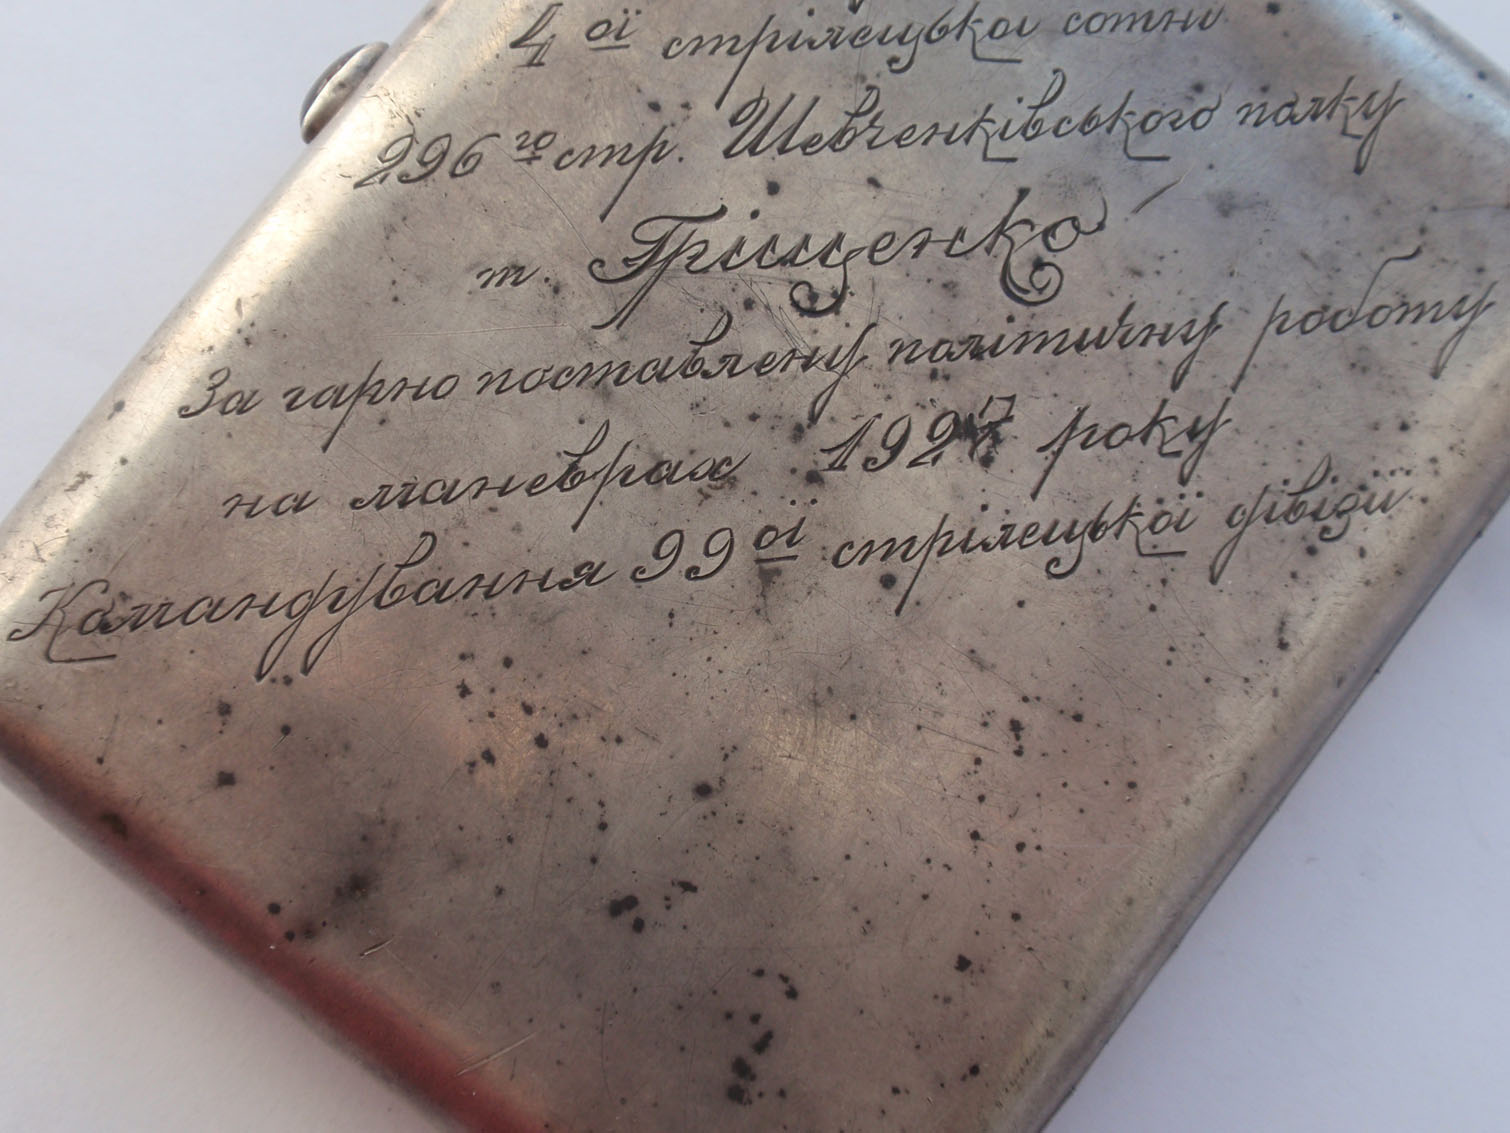 4ої стрілецької сотні
296го стр. Шевченківського полку
т. Гріщенко
За гарно поставлену політичну роботу
на маневрах 1927 року
Командування 99ої стрілецької дівізії